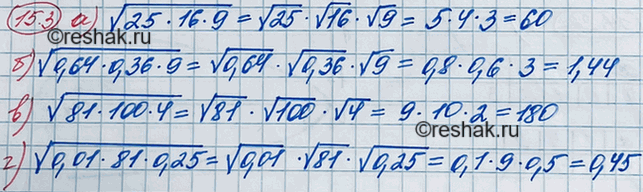 15.3 а) √25·16·9 = √25·√16·√9 = 5·4·3=60
©reshak.ru
б) √0,64·0,36·9 = √0,64·√0,36·√9 = 0,8·0,6·3 = 1,44
в) √81·100·4 = √81·√100·√4 = 9·10·2=180
©reshak.ru
г) √0,01·81·0,25 = √0,01·√81·√0,25 = 0,1·9·0,5 = 0,45